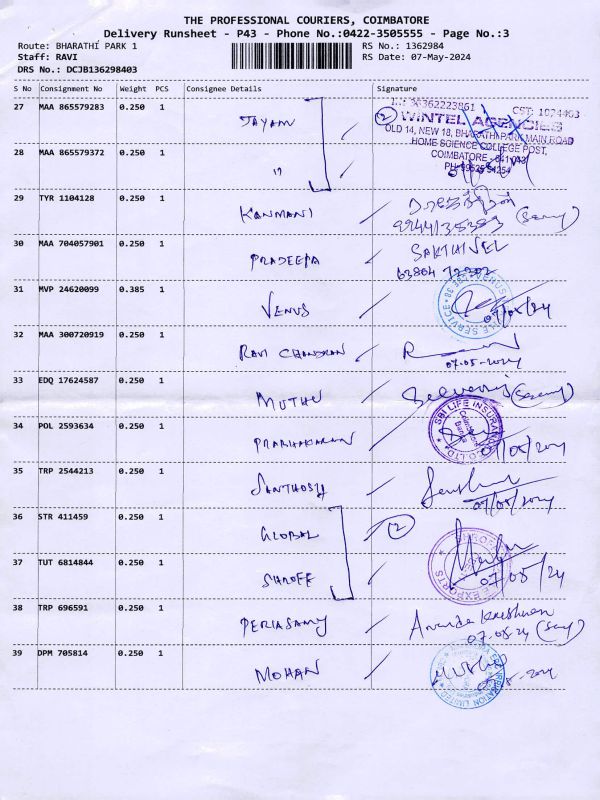 THE PROFESSIONAL COURIERS, COIMBATORE
Delivery Runsheet - P43 - Phone No.:0422-3505555 - Page No.:3
Route: BHARATHI PARK 1 RS No.: 1362984
Staff: RAVI RS Date: 07-May-2024
DRS No.: DCJB136298403
S No Consignment No Weight PCS Consignee Details Signature
27 MAA 865579283 0.250 1 JAYAM
2 WINTEL AGENCIES
OLD 14, NEW 18, BHARATHI PARK MAIN ROAD
HOME SCIENCE COLLEGE POST,
COIMBATORE - 641 043
28 MAA 865579372 0.250 1 "
29 TYR 1104128 0.250 1 KANMANI
30 MAA 704057901 0.250 1 PRADEEPA SAKTHIVEL
31 MVP 24620099 0.385 1 VENUS 07/05/24
32 MAA 300720919 0.250 1 RAVI CHANDRAN
07.05.2024
33 EDQ 17624587 0.250 1 MUTHU
34 POL 2593634 0.250 1 PRABHAKARAN SBI LIFE INSURANCE CO. LTD.
35 TRP 2544213 0.250 1 SANTHOSH
36 STR 411459 0.250 1 GLOBAL 2
37 TUT 6814844 0.250 1 SHROFF 07/05/24
38 TRP 696591 0.250 1 PERIASAMY
07.05.24
39 DPM 705814 0.250 1 MOHAN